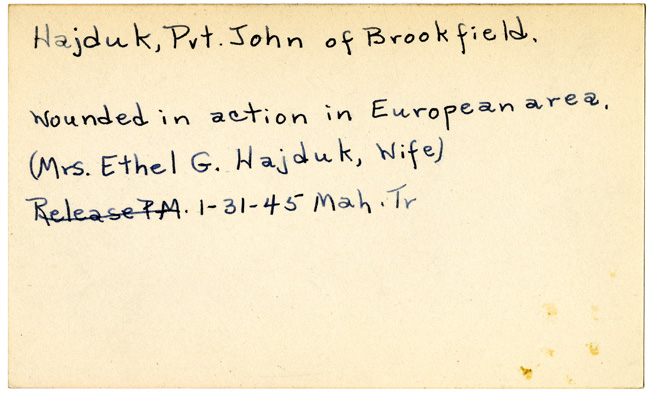 Hajduk, Pvt. John of Brookfield.
Wounded in action in European area.
(Mrs. Ethel G. Hajduk, Wife)
Release P.M. 1-31-45 Mah. Tr